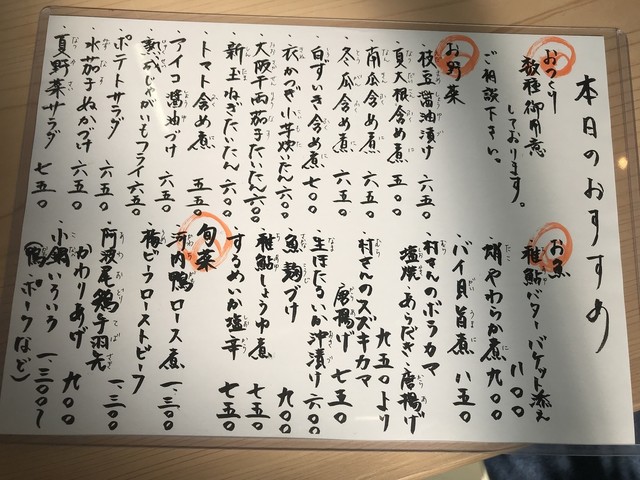 本日のおすすめ
おつくり
数種御用意
しております。
ご相談下さい。
お野菜
・枝豆醤油漬け 六五〇
・夏大根含め煮 五〇〇
・南瓜含め煮 六五〇
・冬瓜含め煮 六五〇
・白ずいき含め煮 七〇〇
・衣かつぎ小芋炊いたん 六〇〇
・大阪千両茄子たいたん 六〇〇
・新玉ねぎたいたん 六〇〇
・トマト含め煮 五五〇
・アイコ醤油づけ 六五〇
・熟成じゃがいもフライ 六五〇
・ポテトサラダ 六五〇
・水茄子ぬかづけ 六五〇
・夏野菜サラダ 七五〇
お魚
・稚鮎バターバケット添え
八〇〇
・蛸やわらか煮 九〇〇
・バイ貝旨煮 八五〇
・村さんのボラカマ
塩焼・あらだき・唐揚げ
九五〇より
・村さんのスズキカマ
唐揚げ 七五〇
・生ほたるいか沖漬け 六〇〇
・魚麹づけ 九〇〇
・稚鮎しょうゆ煮 七五〇
・するめいか塩辛 七五〇
旬菜
・河内鴨ロース煮 一、三〇〇
・橋ビーフローストビーフ
一、三〇〇
・阿波尾鶏手羽先
かわりあげ 九〇〇
・小鍋いろいろ 一、三〇〇〜
(鴨、ポークなど)